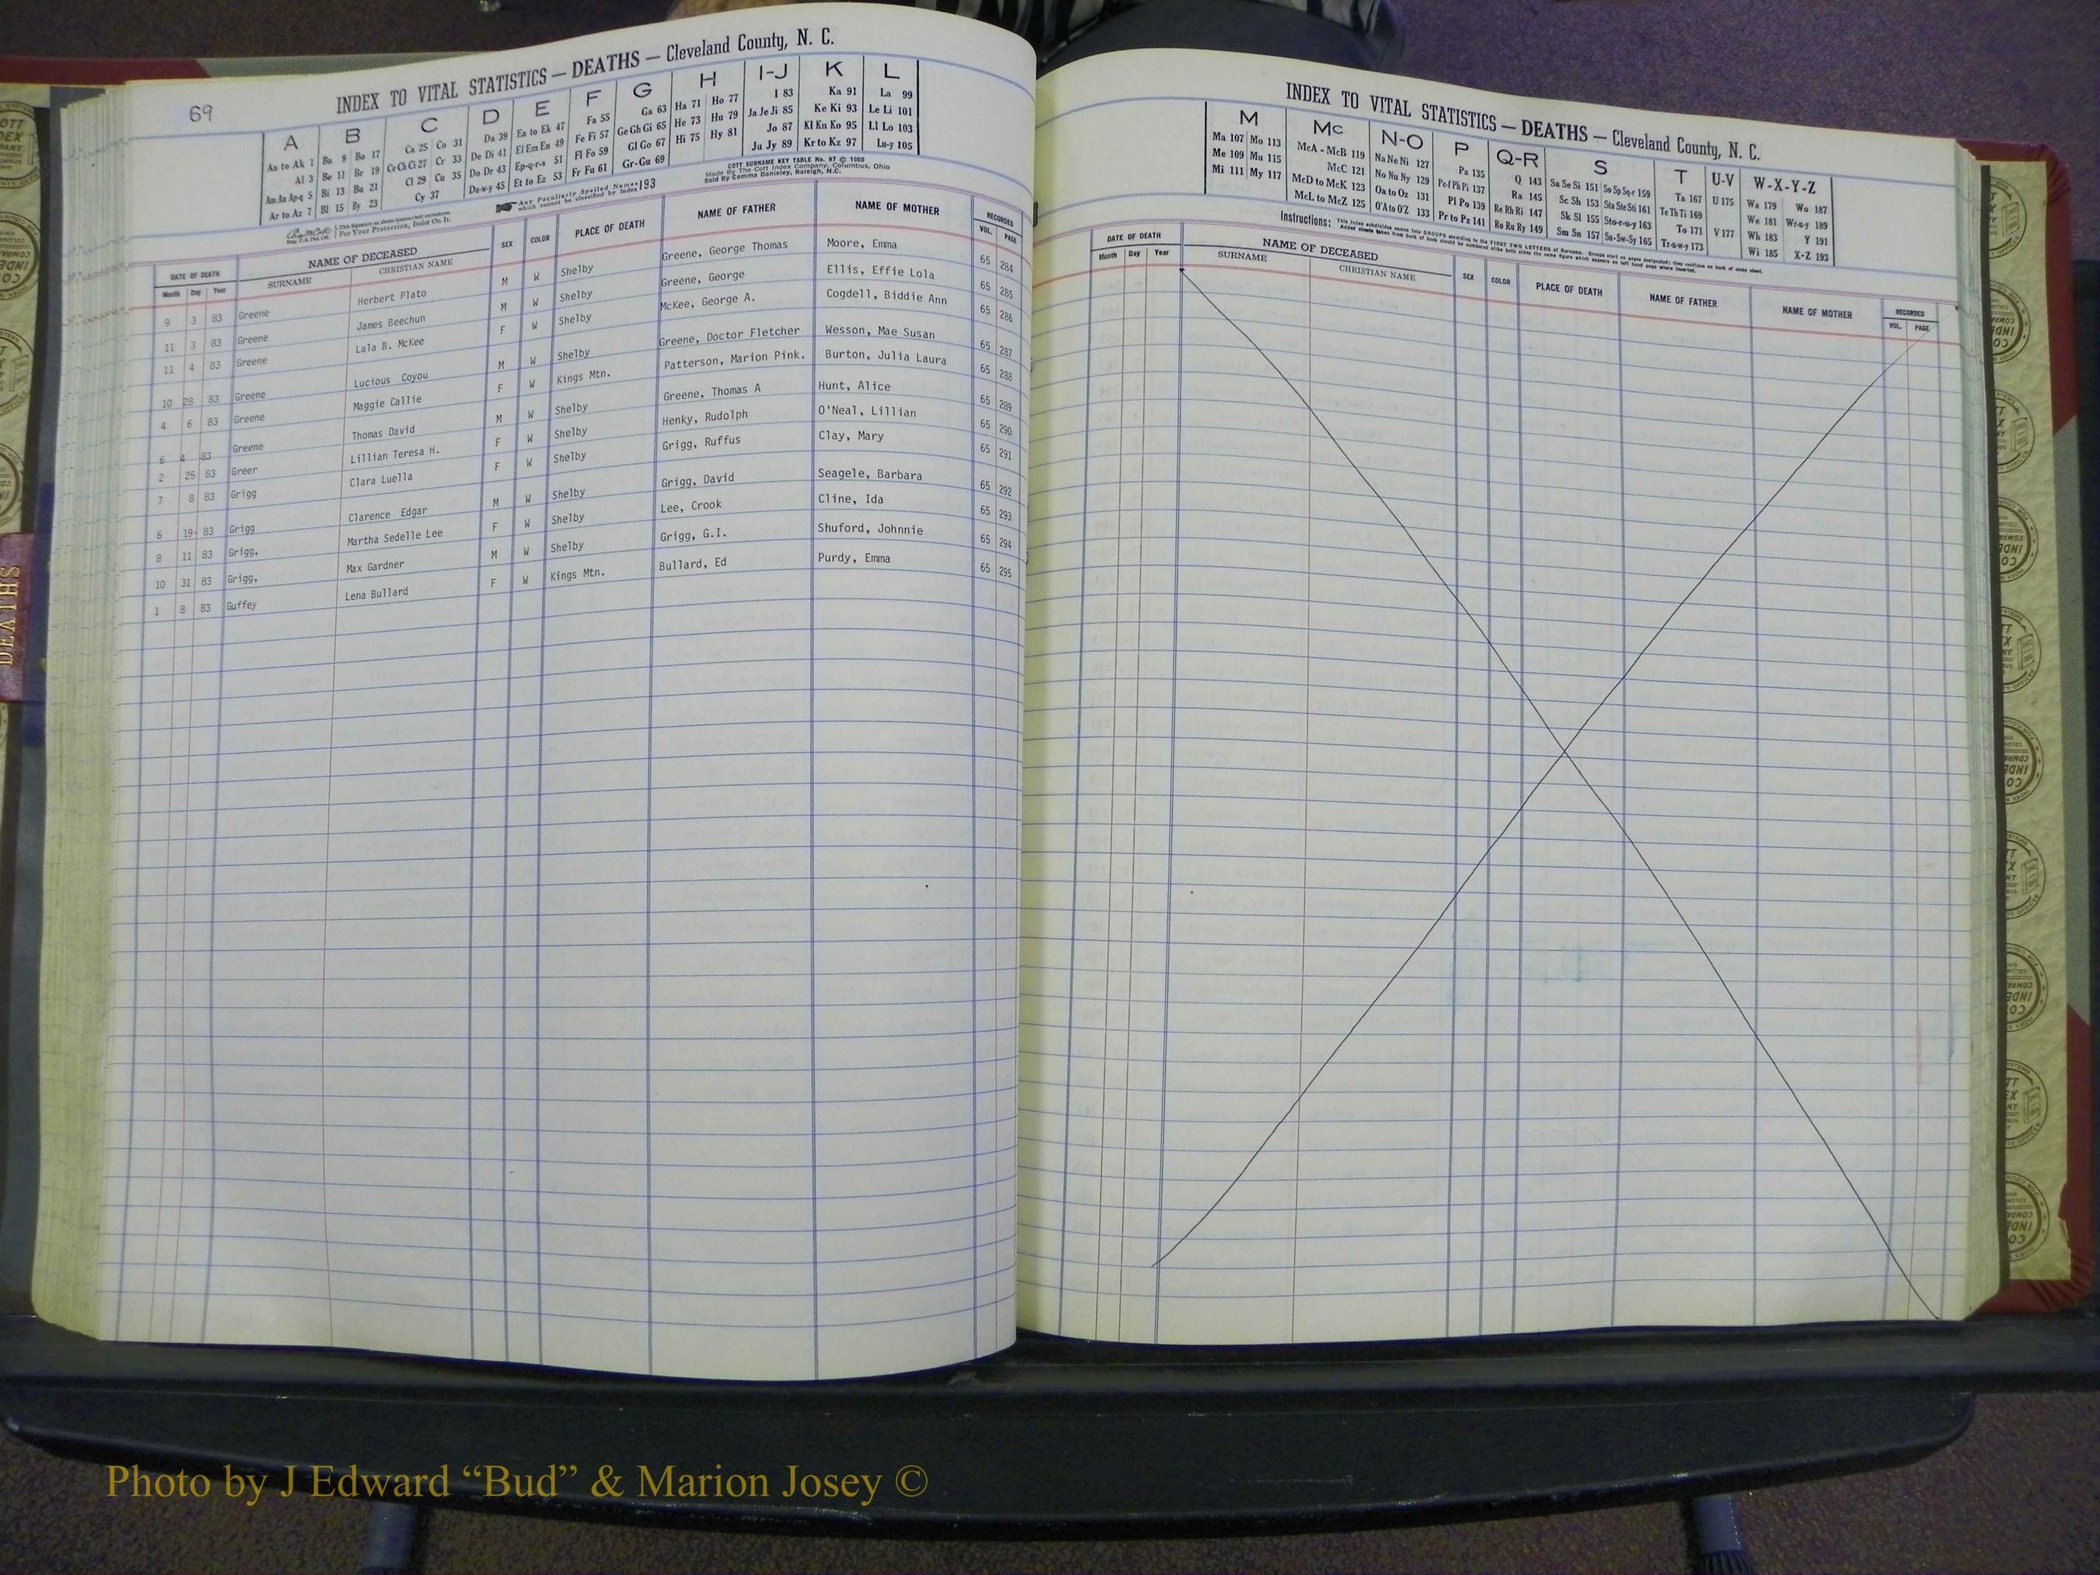 69
INDEX TO VITAL STATISTICS — DEATHS — Cleveland County, N. C.
A B C D E F G H I-J K L
Aa to Ak 1 Ba 9 Bo 17 Ca 25 Co 31 Da 39 Ea to Ek 47 Fa 55 Ga 63 Ha 71 Ho 77 I 83 Ka 91 La 99
Al 3 Be 11 Br 19 Ce Ch Ci 27 Cr 33 De Di 41 El Em En 49 Fe Fi 57 Ge Gh Gi 65 He 73 Hu 79 Ja Je Ji 85 Ke Ki 93 Le Li 101
Am An Ap-q 5 Bi 13 Bu 21 Cl 29 Cu 35 Do Dr 43 Ep-q-r-s 51 Fl Fo 59 Gl Go 67 Hi 75 Hy 81 Jo 87 Kl Kn Ko 95 Ll Lo 103
Ar to Az 7 Bl 15 By 23 Cy 37 Du-w-y 45 Et to Ez 53 Fr Fu 61 Gr-Gu 69 Ju Jy 89 Kr to Kz 97 Lu-y 105
COTT SURNAME KEY TABLE No. 87 © 1960
Made By The Cott Index Company, Columbus, Ohio
Sold By Comma Danieley, Raleigh, N.C.
Any Peculiarly Spelled Names which cannot be classified by Index 193
For Your Protection, Insist On It.
DATE OF DEATH NAME OF DECEASED SEX COLOR PLACE OF DEATH NAME OF FATHER NAME OF MOTHER RECORDED
Month Day Year SURNAME CHRISTIAN NAME VOL. PAGE
9 3 83 Greene Herbert Plato M W Shelby Greene, George Thomas Moore, Emma 65 284
11 3 83 Greene James Beechun M W Shelby Greene, George Ellis, Effie Lola 65 285
11 4 83 Greene Lala B. McKee F W Shelby McKee, George A. Cogdell, Biddie Ann 65 286
10 28 83 Greene Lucious Coyou M W Shelby Greene, Doctor Fletcher Wesson, Mae Susan 65 287
4 6 83 Greene Maggie Callie F W Kings Mtn. Patterson, Marion Pink. Burton, Julia Laura 65 288
6 4 83 Greene Thomas David M W Shelby Greene, Thomas A Hunt, Alice 65 289
2 25 83 Greer Lillian Teresa H. F W Shelby Henky, Rudolph O'Neal, Lillian 65 290
7 8 83 Grigg Clara Luella F W Shelby Grigg, Ruffus Clay, Mary 65 291
6 19 83 Grigg Clarence Edgar M W Shelby Grigg, David Seagele, Barbara 65 292
8 11 83 Grigg, Martha Sedelle Lee F W Shelby Lee, Crook Cline, Ida 65 293
10 31 83 Grigg, Max Gardner M W Shelby Grigg, G.I. Shuford, Johnnie 65 294
1 8 83 Guffey Lena Bullard F W Kings Mtn. Bullard, Ed Purdy, Emma 65 295
INDEX TO VITAL STATISTICS — DEATHS — Cleveland County, N. C.
M Mc N-O P Q-R S T U-V W-X-Y-Z
Ma 107 Mo 113 McA - McB 119 Na Ne Ni 127 Pa 135 Q 143 Sa Se Si 151 So Sp Sq-r 159 Ta 167 U 175 Wa 179 Wo 187
Me 109 Mu 115 McC 121 No Nu Ny 129 Pe-f Ph Pi 137 Ra 145 Sc Sh 153 Sta Ste Sti 161 Te Th Ti 169 We 181 Wr-u-y 189
Mi 111 My 117 McD to McK 123 Oa to Oz 131 Pl Po 139 Re Rh Ri 147 Sk Sl 155 Sto-r-u-y 163 To 171 V 177 Wh 183 Y 191
McL to McZ 125 O'A to O'Z 133 Pr to Pz 141 Ro Ru Ry 149 Sm Sn 157 Su-Sw-Sy 165 Tr-u-w-y 173 Wi 185 X-Z 193
Instructions: This index subdivides names into GROUPS according to the FIRST TWO LETTERS of Surname.
DATE OF DEATH NAME OF DECEASED SEX COLOR PLACE OF DEATH NAME OF FATHER NAME OF MOTHER RECORDED
Month Day Year SURNAME CHRISTIAN NAME VOL. PAGE
DEATHS
Photo by J Edward “Bud” & Marion Josey ©